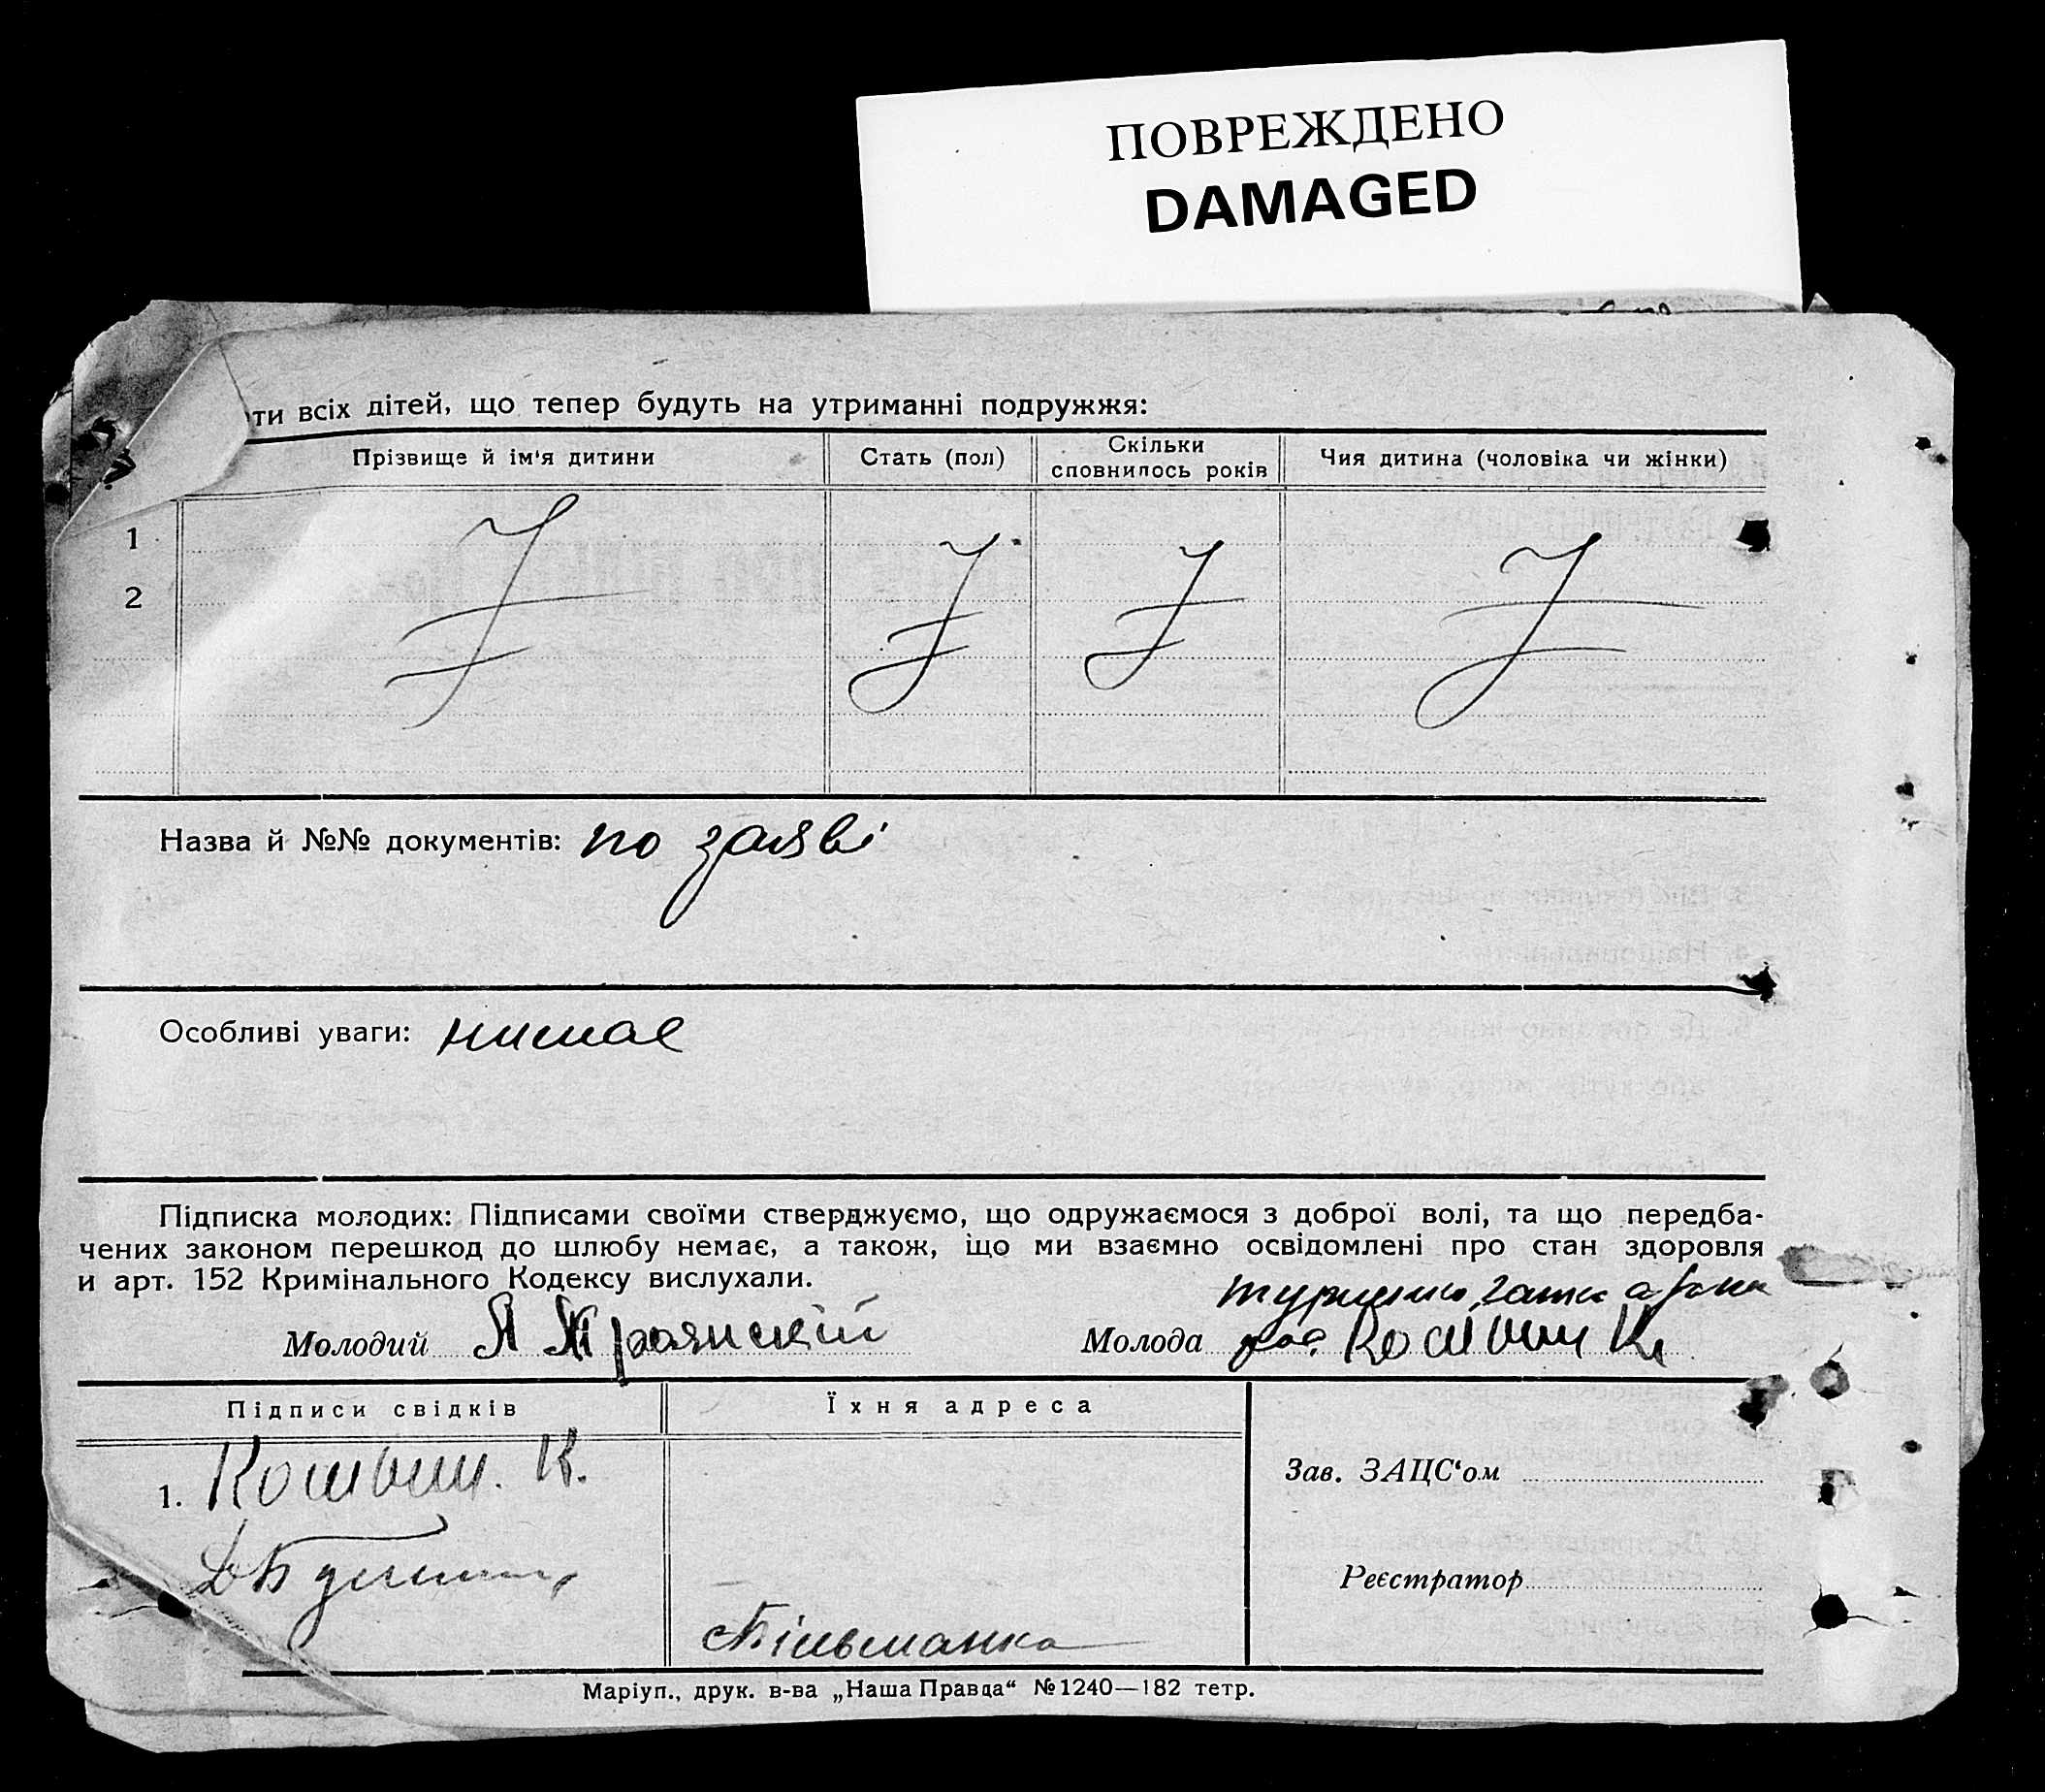 ПОВРЕЖДЕНО
DAMAGED
ти всіх дітей, що тепер будуть на утриманні подружжя:
Прізвище й ім'я дитини Стать (пол) Скільки сповнилось років Чия дитина (чоловіка чи жінки)
1
2
Назва й №№ документів: по заяві
Особливі уваги: нимає
Підписка молодих: Підписами своїми стверджуємо, що одружаємося з доброї волі, та що передба-
чених законом перешкод до шлюбу немає, а також, що ми взаємно освідомлені про стан здоровля
и арт. 152 Кримінального Кодексу вислухали.
Молодий Молода Кошвин К
Підписи свідків Їхня адреса
1. Кошвин. К.
Зав. ЗАЦС'ом
Реєстратор
Маріуп., друк. в-ва „Наша Правда“ №1240—182 тетр.